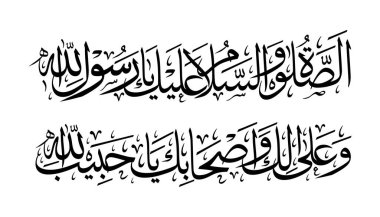 الصَّلوٰةُ وَالسَّلَامُ عَلَيْكَ يَا رَسُوْلَ اللّٰه
وَعَلىٰ اٰلِكَ وَاَصْحَابِكَ يَا حَبِيْبَ اللّٰه